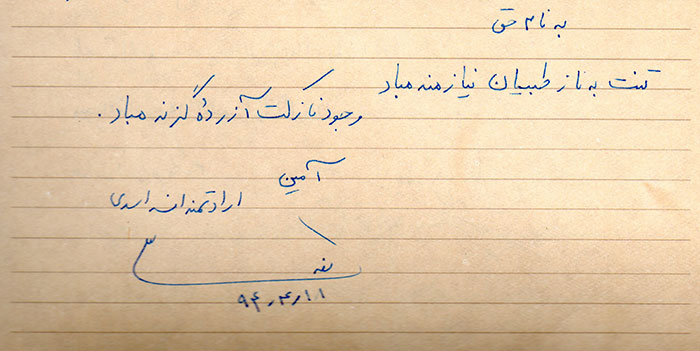 به نام حق
تنت به ناز طبیبان نیازمند مباد
وجود نازکت آزردهٔ گزند مباد.
آمین
ارادتمند اسدی
۹۴٫۴٫۱۱